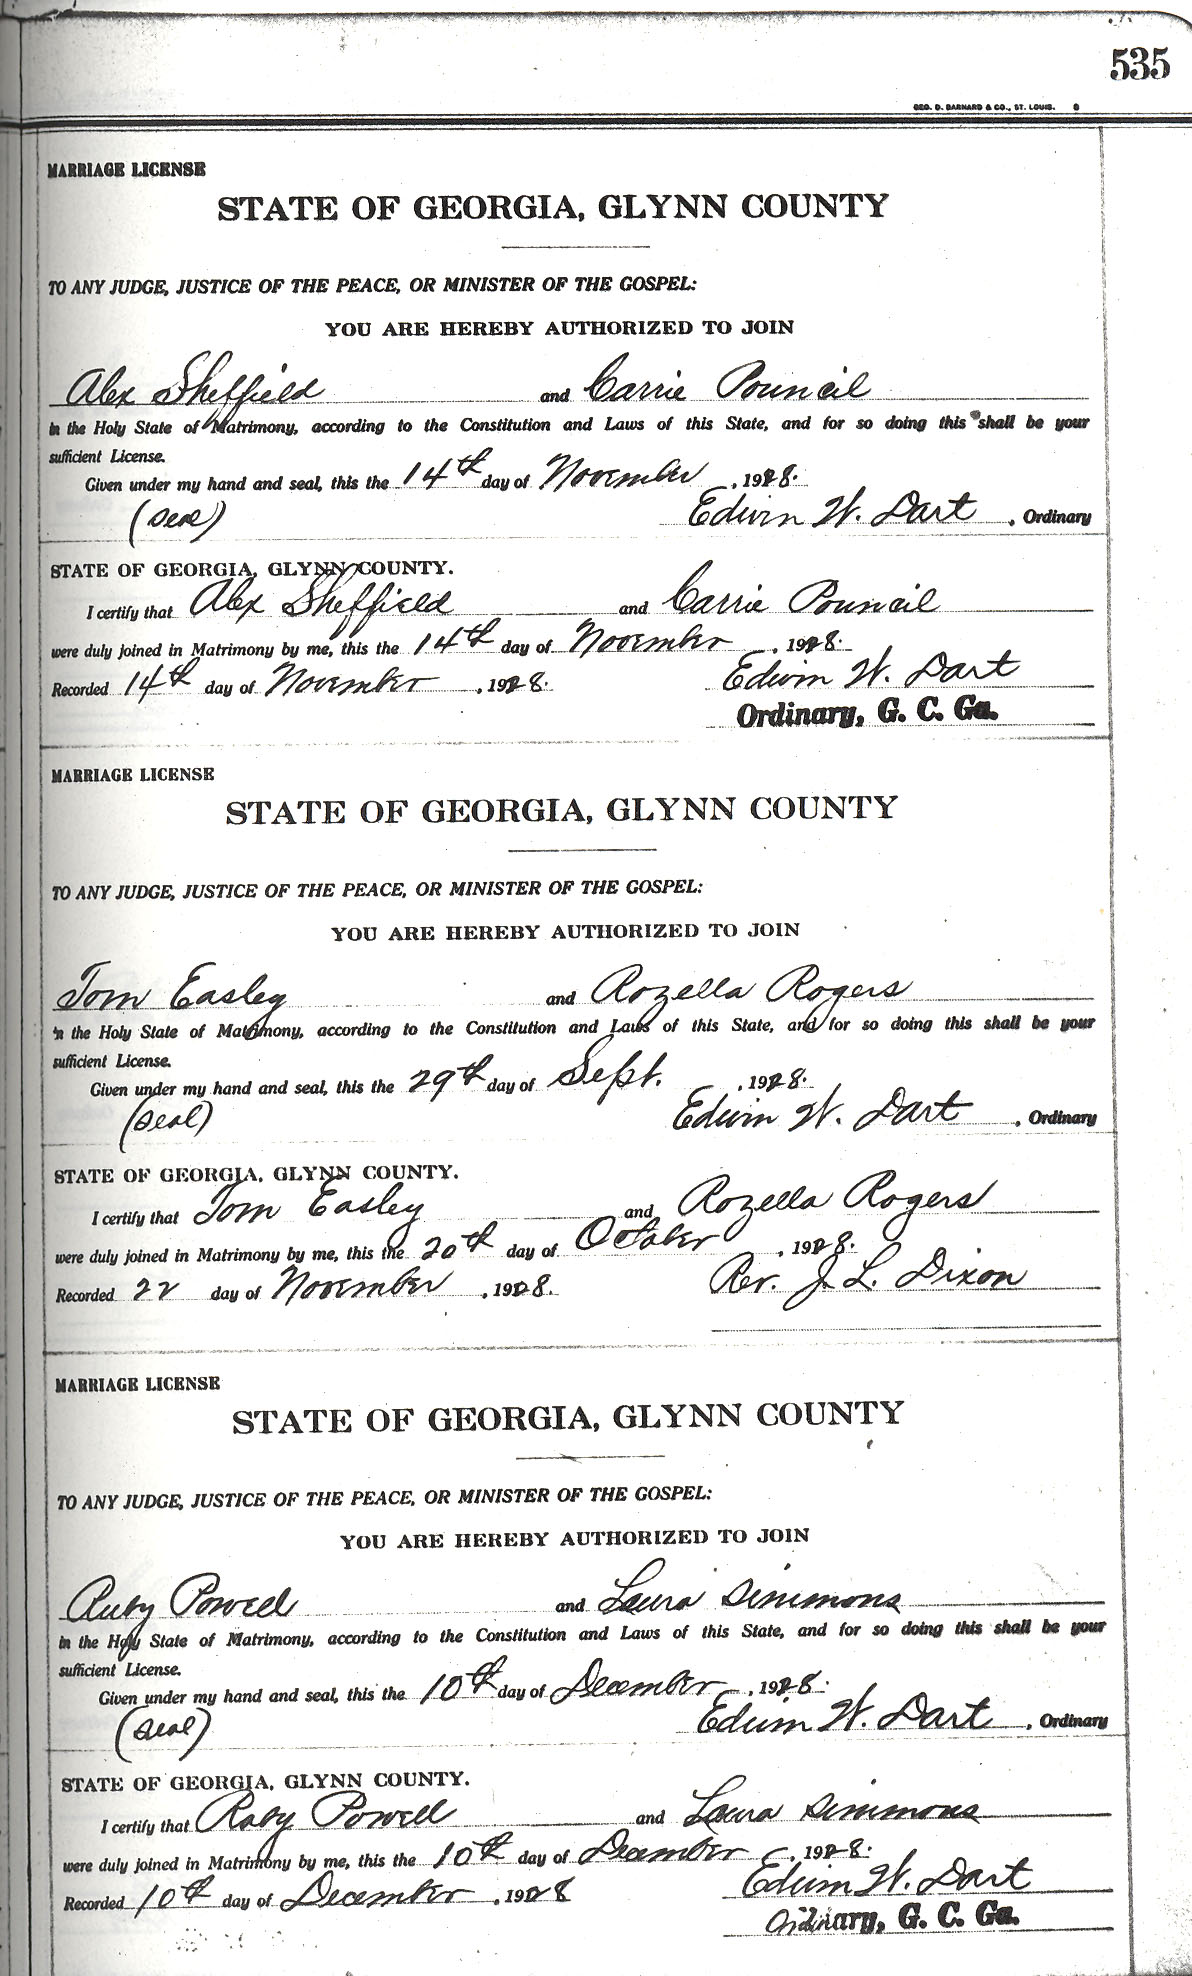 535
GEO. D. BARNARD & CO., ST. LOUIS. 8
MARRIAGE LICENSE
STATE OF GEORGIA, GLYNN COUNTY
TO ANY JUDGE, JUSTICE OF THE PEACE, OR MINISTER OF THE GOSPEL:
YOU ARE HEREBY AUTHORIZED TO JOIN
Alex Sheffield and Carrie Pouncil
in the Holy State of Matrimony, according to the Constitution and Laws of this State, and for so doing this shall be your
sufficient License.
Given under my hand and seal, this the 14th day of November, 1928.
(Seal) Edwin W. Dart, Ordinary
STATE OF GEORGIA, GLYNN COUNTY.
I certify that Alex Sheffield and Carrie Pouncil
were duly joined in Matrimony by me, this the 14th day of November, 1928.
Recorded 14th day of November, 1928. Edwin W. Dart
Ordinary, G. C. Ga.
MARRIAGE LICENSE
STATE OF GEORGIA, GLYNN COUNTY
TO ANY JUDGE, JUSTICE OF THE PEACE, OR MINISTER OF THE GOSPEL:
YOU ARE HEREBY AUTHORIZED TO JOIN
Tom Easley and Rozella Rogers
in the Holy State of Matrimony, according to the Constitution and Laws of this State, and for so doing this shall be your
sufficient License.
Given under my hand and seal, this the 29th day of Sept., 1928.
(Seal) Edwin W. Dart, Ordinary
STATE OF GEORGIA, GLYNN COUNTY.
I certify that Tom Easley and Rozella Rogers
were duly joined in Matrimony by me, this the 20th day of October, 1928.
Recorded 22 day of November, 1928. Rev. J. L. Dixon
MARRIAGE LICENSE
STATE OF GEORGIA, GLYNN COUNTY
TO ANY JUDGE, JUSTICE OF THE PEACE, OR MINISTER OF THE GOSPEL:
YOU ARE HEREBY AUTHORIZED TO JOIN
Ruby Powell and Laura Simmons
in the Holy State of Matrimony, according to the Constitution and Laws of this State, and for so doing this shall be your
sufficient License.
Given under my hand and seal, this the 10th day of December, 1928.
(Seal) Edwin W. Dart, Ordinary
STATE OF GEORGIA, GLYNN COUNTY.
I certify that Ruby Powell and Laura Simmons
were duly joined in Matrimony by me, this the 10th day of December, 1928.
Recorded 10th day of December, 1928 Edwin W. Dart
Ordinary, G. C. Ga.